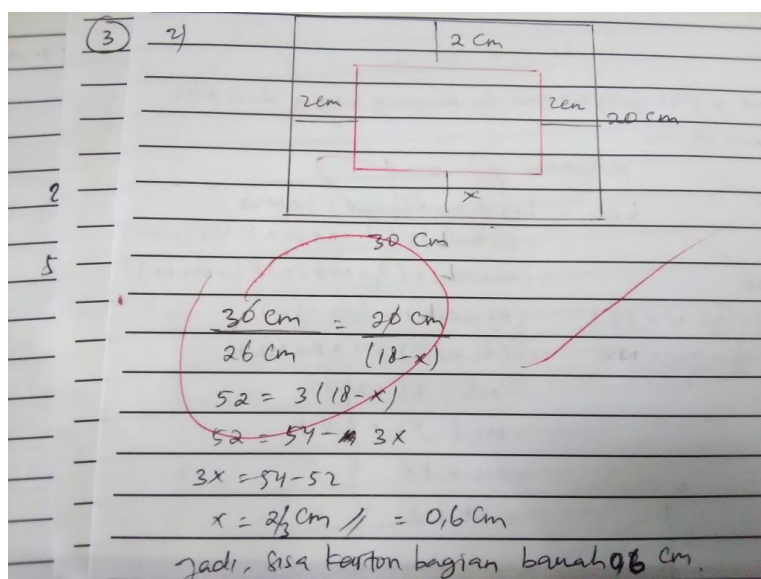 3 2)
2 Cm
2cm 2cm 20 cm
x
2
30 Cm
5
30 cm = 20 cm
26 cm (18-x)
52 = 3(18-x)
52 = 54 - 3x
3x = 54-52
x = 2/3 Cm // = 0,6 Cm
Jadi, sisa karton bagian bawah 0,6 cm.